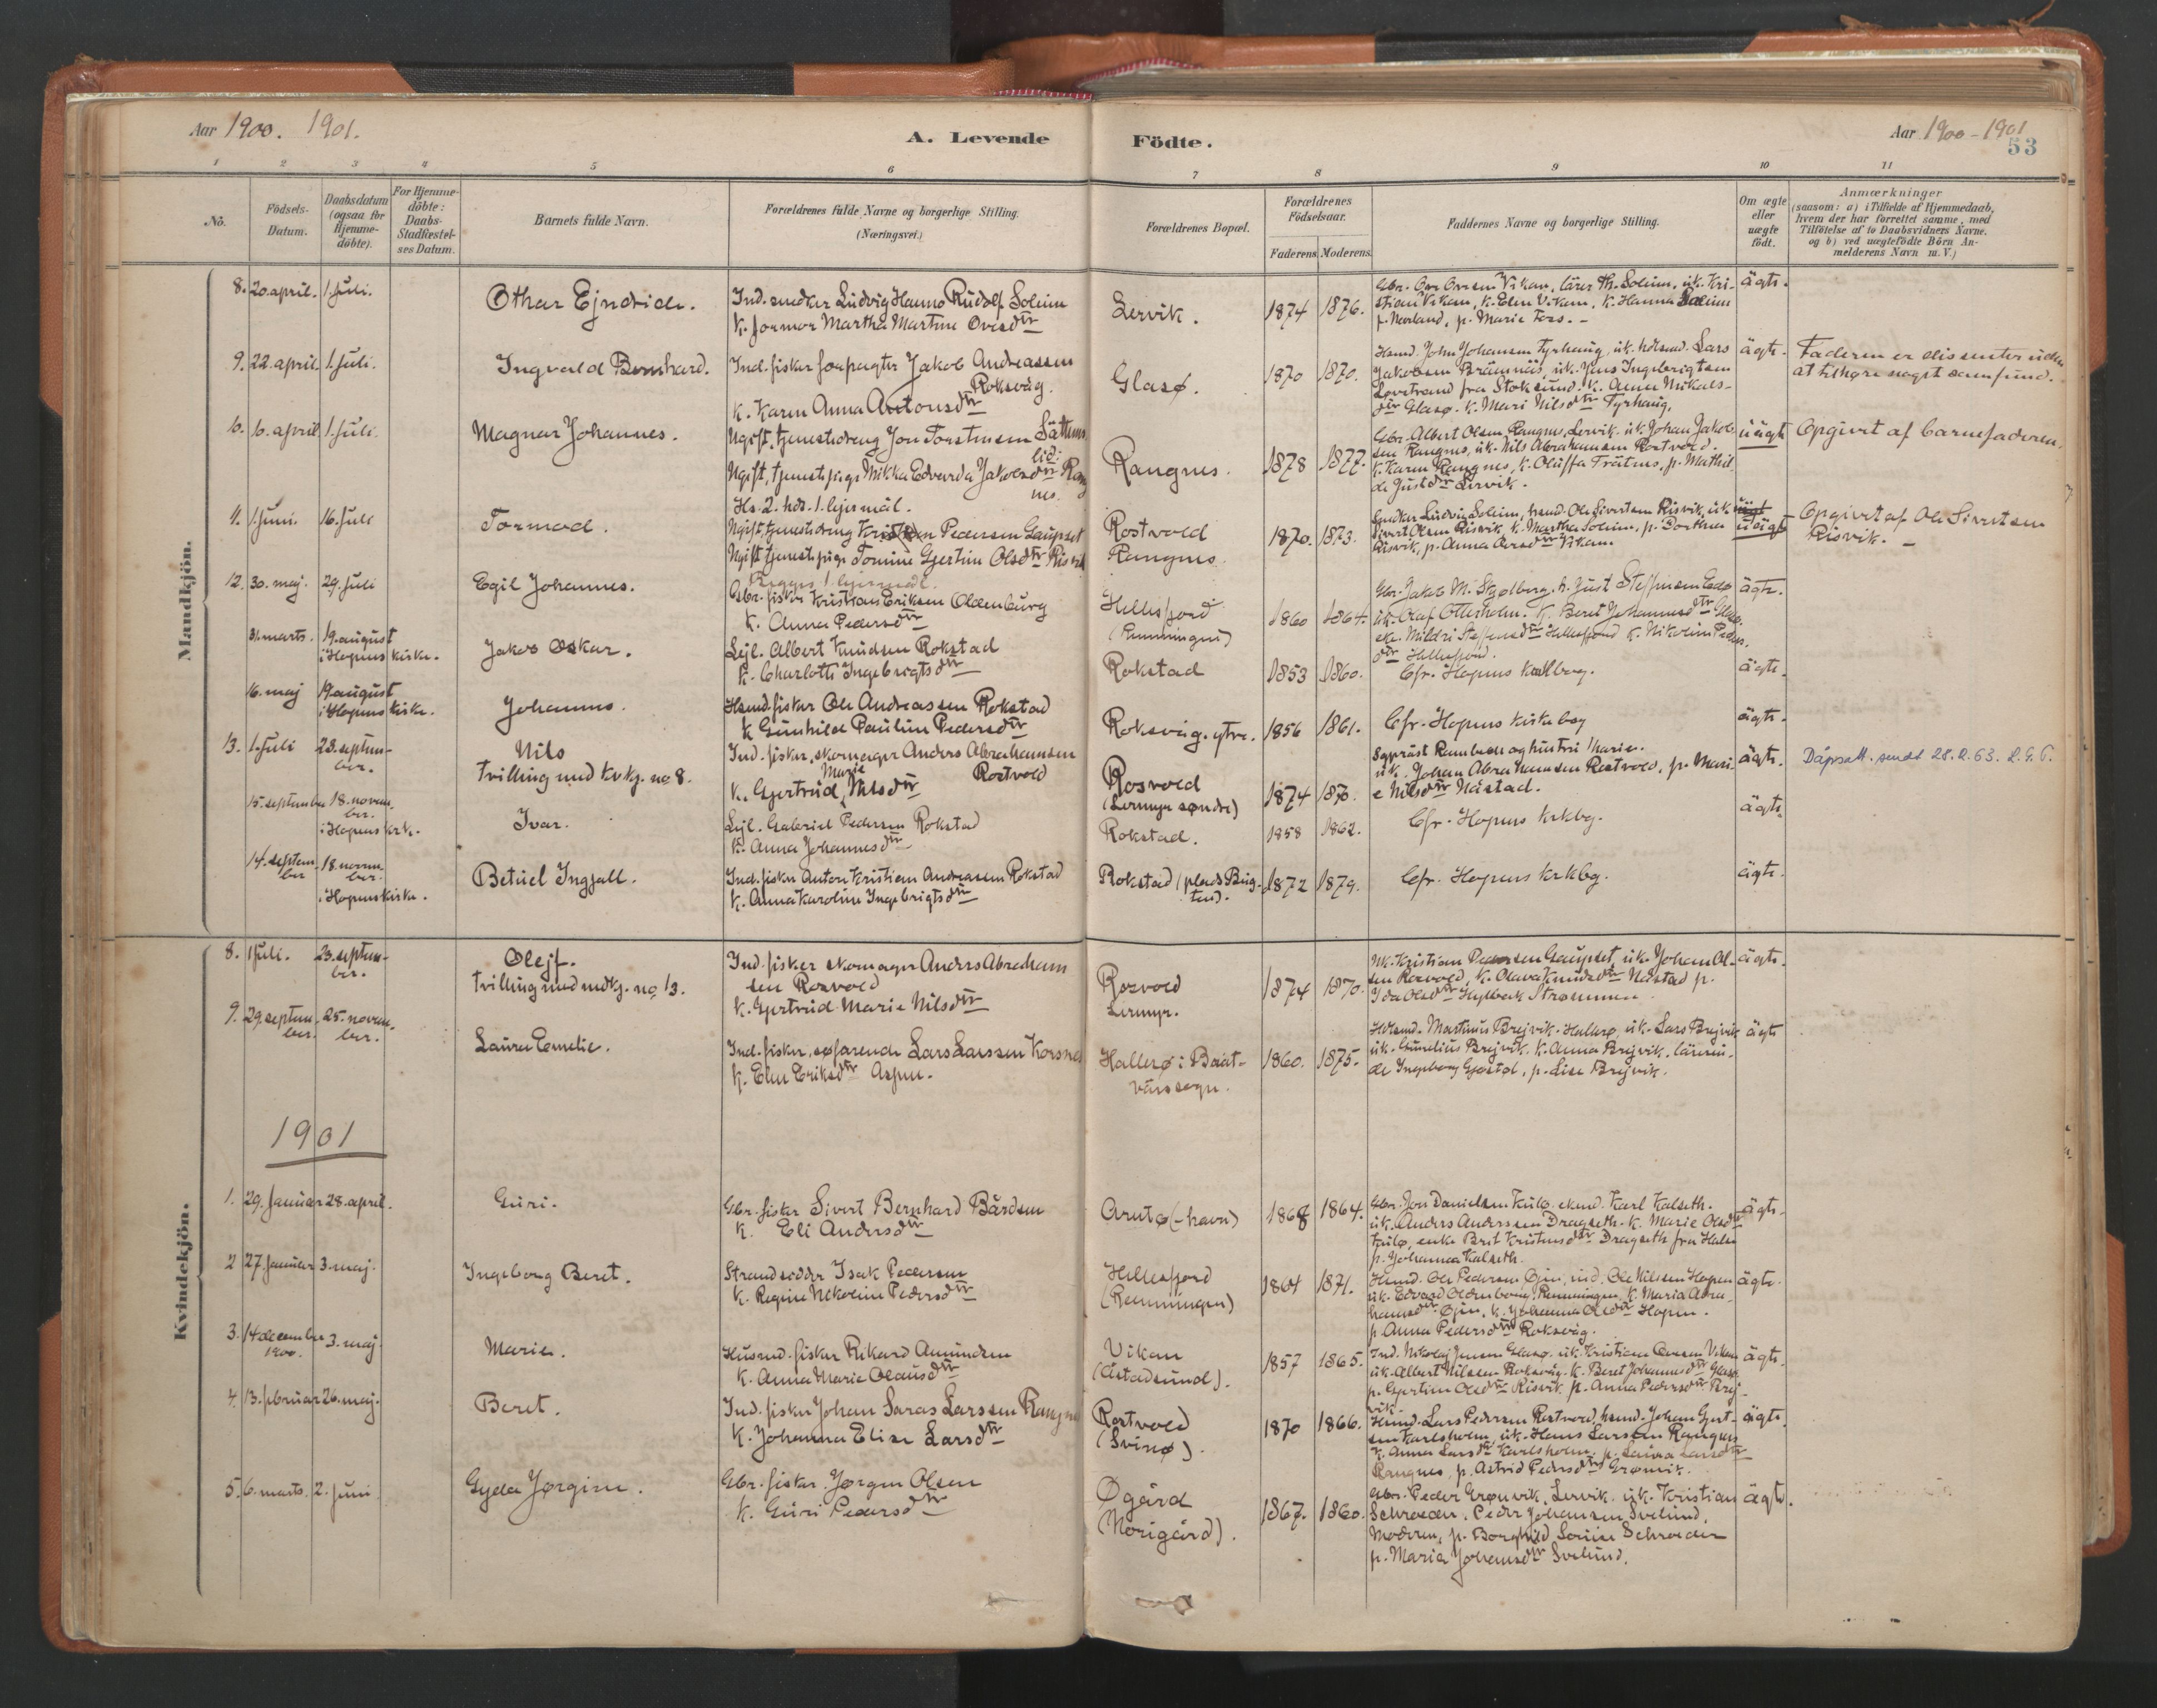 Aar 1900. 1901.
A. Levende
Födte.
Aar 1900-1901
53
1 2 3 4 5 6 7 8 9 10 11
No.
Födsels-Datum.
Daabsdatum (ogsaa for Hjemme-döbte).
For Hjemme-döbte: Daabs-Stadfæstel-ses Datum.
Barnets fulde Navn.
Forældrenes fulde Navne og borgerlige Stilling.
(Næringsvei.)
Forældrenes Bopæl.
Forældrenes Födselsaar.
Faderens Moderens
Faddernes Navne og borgerlige Stilling.
Om ægte eller uægte födt.
Anmærkninger
(saasom: a) i Tilfælde af Hjemmedaab,
hvem der har forrettet samme, med
Tilföielse af to Daabsvidners Navne.
og b) ved uægtefödte Börn An-
melderens Navn m. V.)
Mandkjön.
8. 20. april. 1. juli.
Othar Ejndride.
Ind. snedker Ludvig Hanno Rudolf Soleim
K. jormor Martha Martine Ovesdtr
Lervik.
1874 1876.
Gbr. Ove Ovesen Vikan, lärer Th. Soleim, uk. Kri-
stian Vikan, k. Elen Vikan, k. Hanna Soleim
ägte.
9. 22. april. 1. juli.
Ingvald Bernhard.
Ind. fisker Jakob Andreassen
Roksvåg.
K. Karen Anna Antonsdtr
Glasø.
1870 1870.
Hsmd. John Johansen Tyrhaug, uk. Lars
Jakobsen Brämnäs, uk. Jens Ingebrigtsen
fra Stoksund. K. Anne Mikals-
dtr Glasø. K. Mari Nilsdtr Tyrhaug.
ägte.
Faderen er dissenter uden
at tilhøre noget samfund.
10. 10. april 1. juli.
Magnar Johannes.
Ugift, tjenestedreng Jon Torstensen Sättem
lid:
Ugift, tjenestepige Mikka Edvarda Jakobsdtr Rang
nes.
Hs. 2. hds. 1. lejermål.
Rangnes.
1878 1877.
Gbr. Albert Olsen Rangnes, Lervik. uk. Johan Jakob-
sen Rangnes, uk. Nils Abrahamsen Rostvold.
K. Karen Rangnes, k. Oluffa Trätnes, p. Mathil
de Justdtr Lervik.
uägte
Opgivet af barnefaderen.
11. 1. juni. 16. juli
Tormod.
Ugift, tjenestedreng Kristen Pedersen Gaupset
Ugift tjenestepige Tomine Gjertine Olsdtr Risvik
Begges 1. lejermål.
Rostvold
Rangnes.
1870. 1873.
Snedker Ludvig Soleim, hsmd. Ole Sivertsen Risvik, uk.
Sivert Olsen Risvik, k. Martha Soleim, p. Dorthea
Risvik, p. Anna Ovesdtr Vikan.
uägte
Opgivet af Ole Sivertsen
Risvik.
12. 30. maj. 29. juli
Egil Johannes.
Gbr. fisker Kristian Eriksen Oldenburg
K. Anna Pedersdtr
Hellesfjord
(Renningen)
1860 1864.
Gbr. Jakob M. Skjølberg. h. Just Steffensen Edø
uk. Olaf Otterholm. K. Beret Johannesdtr Glasø.
eke. Mildri Steffensdtr Hellesfjord k. Nikoline Peders
dtr Hellesfjord.
ägte.
31. marts. 19. august
i Hopens kirke.
Jakob Oskar.
Lejl. Albert Knudsen Rokstad
K. Charlotte Ingebrigtsdtr
Rokstad
1853 1860.
Cfr. Hopens kirkbog.
ägte.
16. maj 19. august
i Hopens kirke.
Johannes.
Hsmd. fisker Ole Andreassen Rokstad
K Gunhild Pauline Pedersdtr
Roksvåg, ytre.
1856 1861.
Cfr. Hopens kirkebog
ägte.
13. 1. juli 23. septem-
ber.
Nils
Tvilling med kvkj. no 8.
Ind. fisker, skomager Anders Abrahamsen
Rostvold
K. Gjertrud Marie Nilsdtr
Rosvold
(Lermyr søndre)
1874 1870.
Sogneprest Rambech og hustru Marie.
uk. Johan Abrahamsen Rostvold, p. Mari-
e Nilsdtr Nåstad.
ägte.
Dåpsatt. sendt 28.2.63. L.G.P.
15. september 18. novem-
ber.
i Hopens krk.
Ivar.
Lejl. Gabriel Pedersen Rokstad
K. Anna Johannesdtr
Rokstad.
1858 1862.
Cfr. Hopens krkbg.
ägte.
14. septem-
ber 18. novem-
ber.
i Hopens kirke.
Betuel Ingjall.
Ind. fisker Anton Kristian Andreasen Rokstad
K. Anna Karoline Ingebrigtsdtr
Rokstad (plads Bug-
ten).
1872 1879.
Cfr. Hopens krkbg.
ägte.
Kvindekjön.
8. 1 juli. 23. septem-
ber.
Olejf.
Tvilling med mdkj. no 13.
Ind. fisker skomager Anders Abraham
sen Rosvold
K. Gjertrud Marie Nilsdtr
Rosvold
Lermyr.
1874 1870.
Uk. Kristian Pedersen Gaupset, uk. Johan Ol-
sen Rosvold, k. Olava Knudsdtr Nåstad p.
Ida Olsdtr Strømmen
ägte.
9. 29. septem-
ber. 25. novem-
ber.
Laura Emelie.
Ind. fisker, søfarende Lars Larssen Korsnes
K. Elen Eriksdtr Aspen.
Hallerø i Baat-
värssogn.
1860. 1875.
Hsmd. Martinus Brejvik. Hallerø, uk. Lars Brejvik
uk. Cornelius Brejvik. K. Anna Brejvik, lärerin-
de Ingeborg Gjøstøl, p. Lise Brejvik.
ägte
1901
1. 29. januar 28. april.
Guri.
Gbr. fisker Sivert Bernhard Bårdsen
K. Eli Andersdtr
Arntø (-havn)
1868 1864.
Gbr. Jon Danielsen Kulø, ekmd. Karl Kalseth.
uk. Anders Anderssen Dragseth. K. Marie Olsdtr
Kulø, enke Brit Kristensdtr Dragseth fra Halse
p. Johanna Kalseth.
ägte.
2 27. januar 3. maj.
Ingeborg Beret.
Strandsidder Isak Pedersen
K. Regine Nikoline Pedersdtr
Hellesfjord
(Renningen)
1864 1871.
Hsmd. Ole Pedersen Øien, ind. Ole Nilssen Hopen
uk. Edvard Oldenborg, Renningen, K. Maria Abra-
hamsdtr Øien, k. Johanna Olsdtr Hopen.
p Anna Pedersdtr Roksvåg.
ägte.
3. 14 december
1900. 3. maj.
Marie.
Husmd. fisker Rikard Amundsen
K. Anna Marie Olausdtr
Vikan
(Åstadsund).
1857 1865.
Ind. Nikolaj Jensen Glasø. uk. Kristian Ovesen Vikan
uk. Albert Nilssen Roksvåg. K. Beret Johannesdtr Glasø.
p. Gjertine Olsdtr Risvik. p. Anna Pedersdtr Brej-
vik.
ägte.
4. 13. februar 26. maj.
Beret.
Ind. fisker Johan Saras Larssen Rangnes
K. Johanna Elise Larsdtr
Rostvold
(Svinø).
1870 1866.
Hsmd. Lars Pedersen Rostvold, hsmd. Johan Gjert-
sen Karlsholm, uk. Hans Larsen Rangnes
K. Anna Larsdtr Karlsholm. p. Laura Larsdtr
Rangnes, p. Astrid Pedersdtr Grønvik.
ägte.
5. 6. marts. 2. juni.
Gyda Jørgine.
Gbr. fisker. Jørgen Olsen
K. Guri Pedersdtr
Øgård
(Norigård).
1867. 1860.
Gbr. Peder Grønvik, Lervik. uk. Kristian
Schrøder. Peder Johansen Svelund.
Moderen, p. Borghild Louise Schrøder
p. Maria Johansdtr Svelund.
ägte.